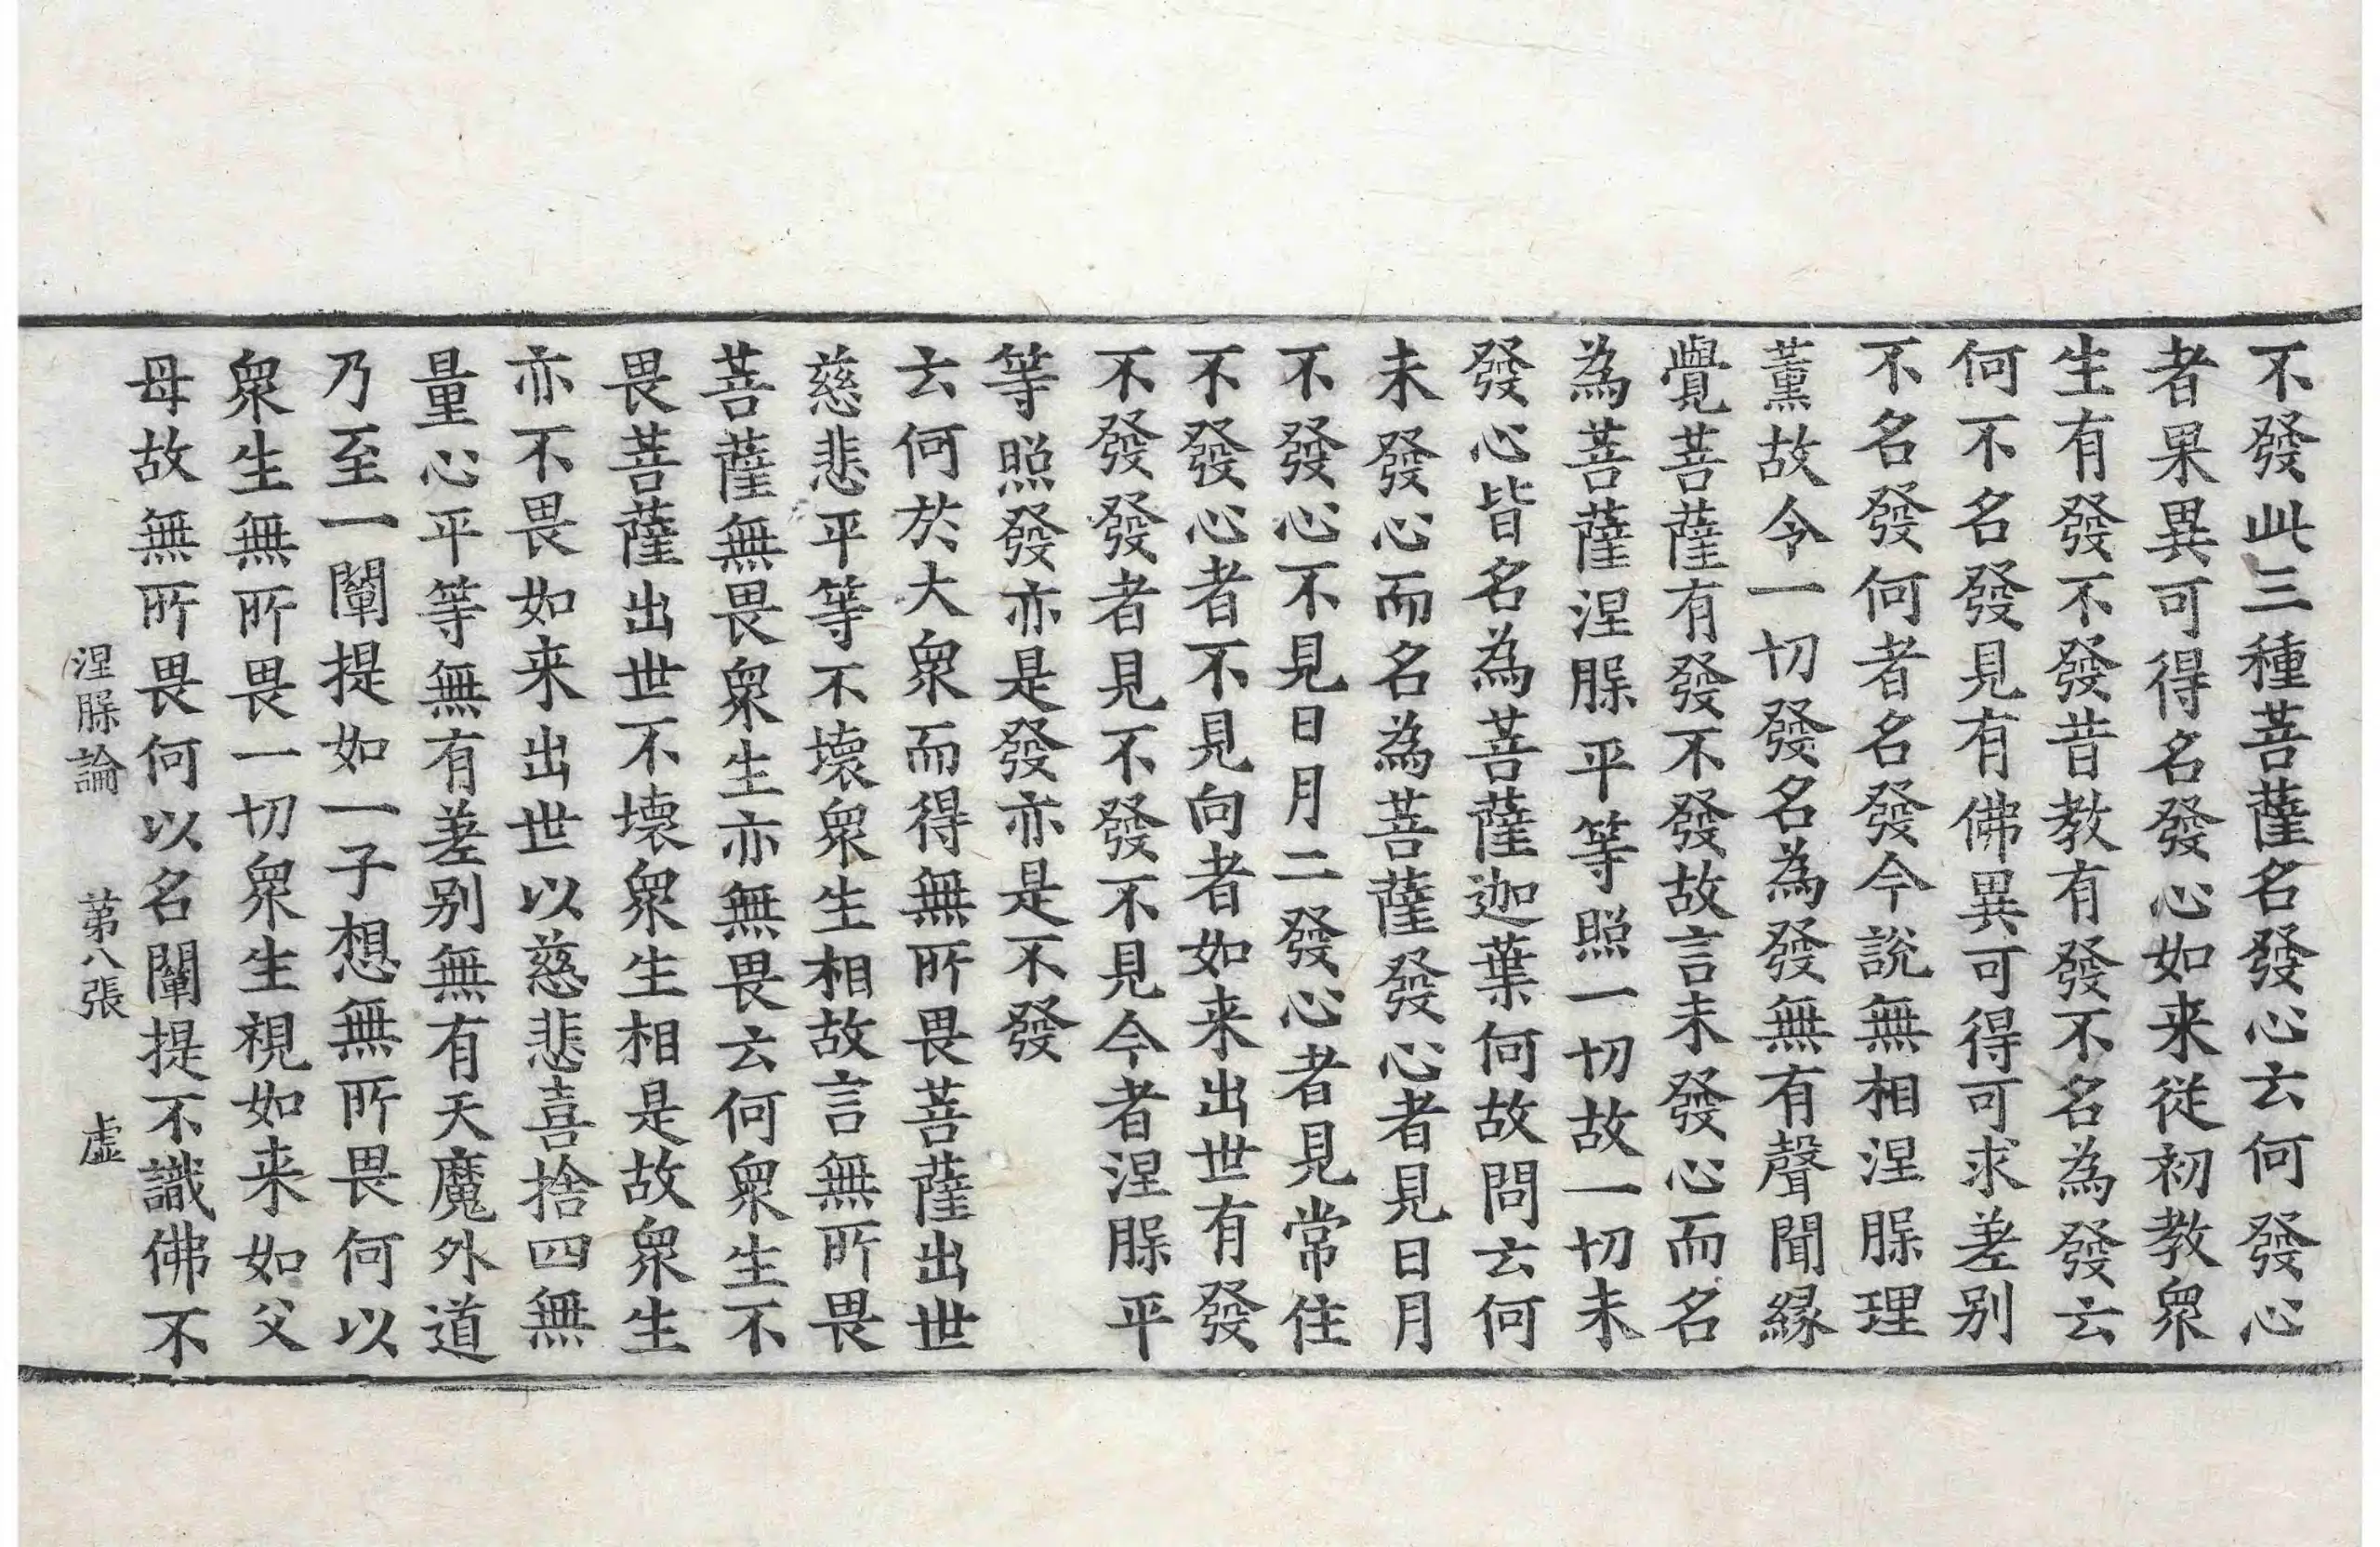 不發此三種菩薩名發心云何發心
者果異可得名發心如来從初教衆
生有發不發昔教有發不名為發云
何不名發見有佛異可得可求差别
不名發何者名發今說無相涅槃理
薰故令一切發名為發無有聲聞縁
覺菩薩有發不發故言未發心而名
為菩薩涅槃平等照一切故一切未
發心皆名為菩薩迦葉何故問云何
未發心而名為菩薩發心者見日月
不發心不見日月二發心者見常住
不發心者不見向者如来出世有發
不發發者見不發不見今者涅槃平
等照發亦是發亦是不發
云何於大衆而得無所畏菩薩出世
慈悲平等不壞衆生相故言無所畏
菩薩無畏衆生亦無畏云何衆生不
畏菩薩出世不壞衆生相是故衆生
亦不畏如来出世以慈悲喜捨四無
量心平等無有差别無有天魔外道
乃至一闡提如一子想無所畏何以
衆生無所畏一切衆生視如来如父
母故無所畏何以名闡提不識佛不
涅槃論 第八張 虚